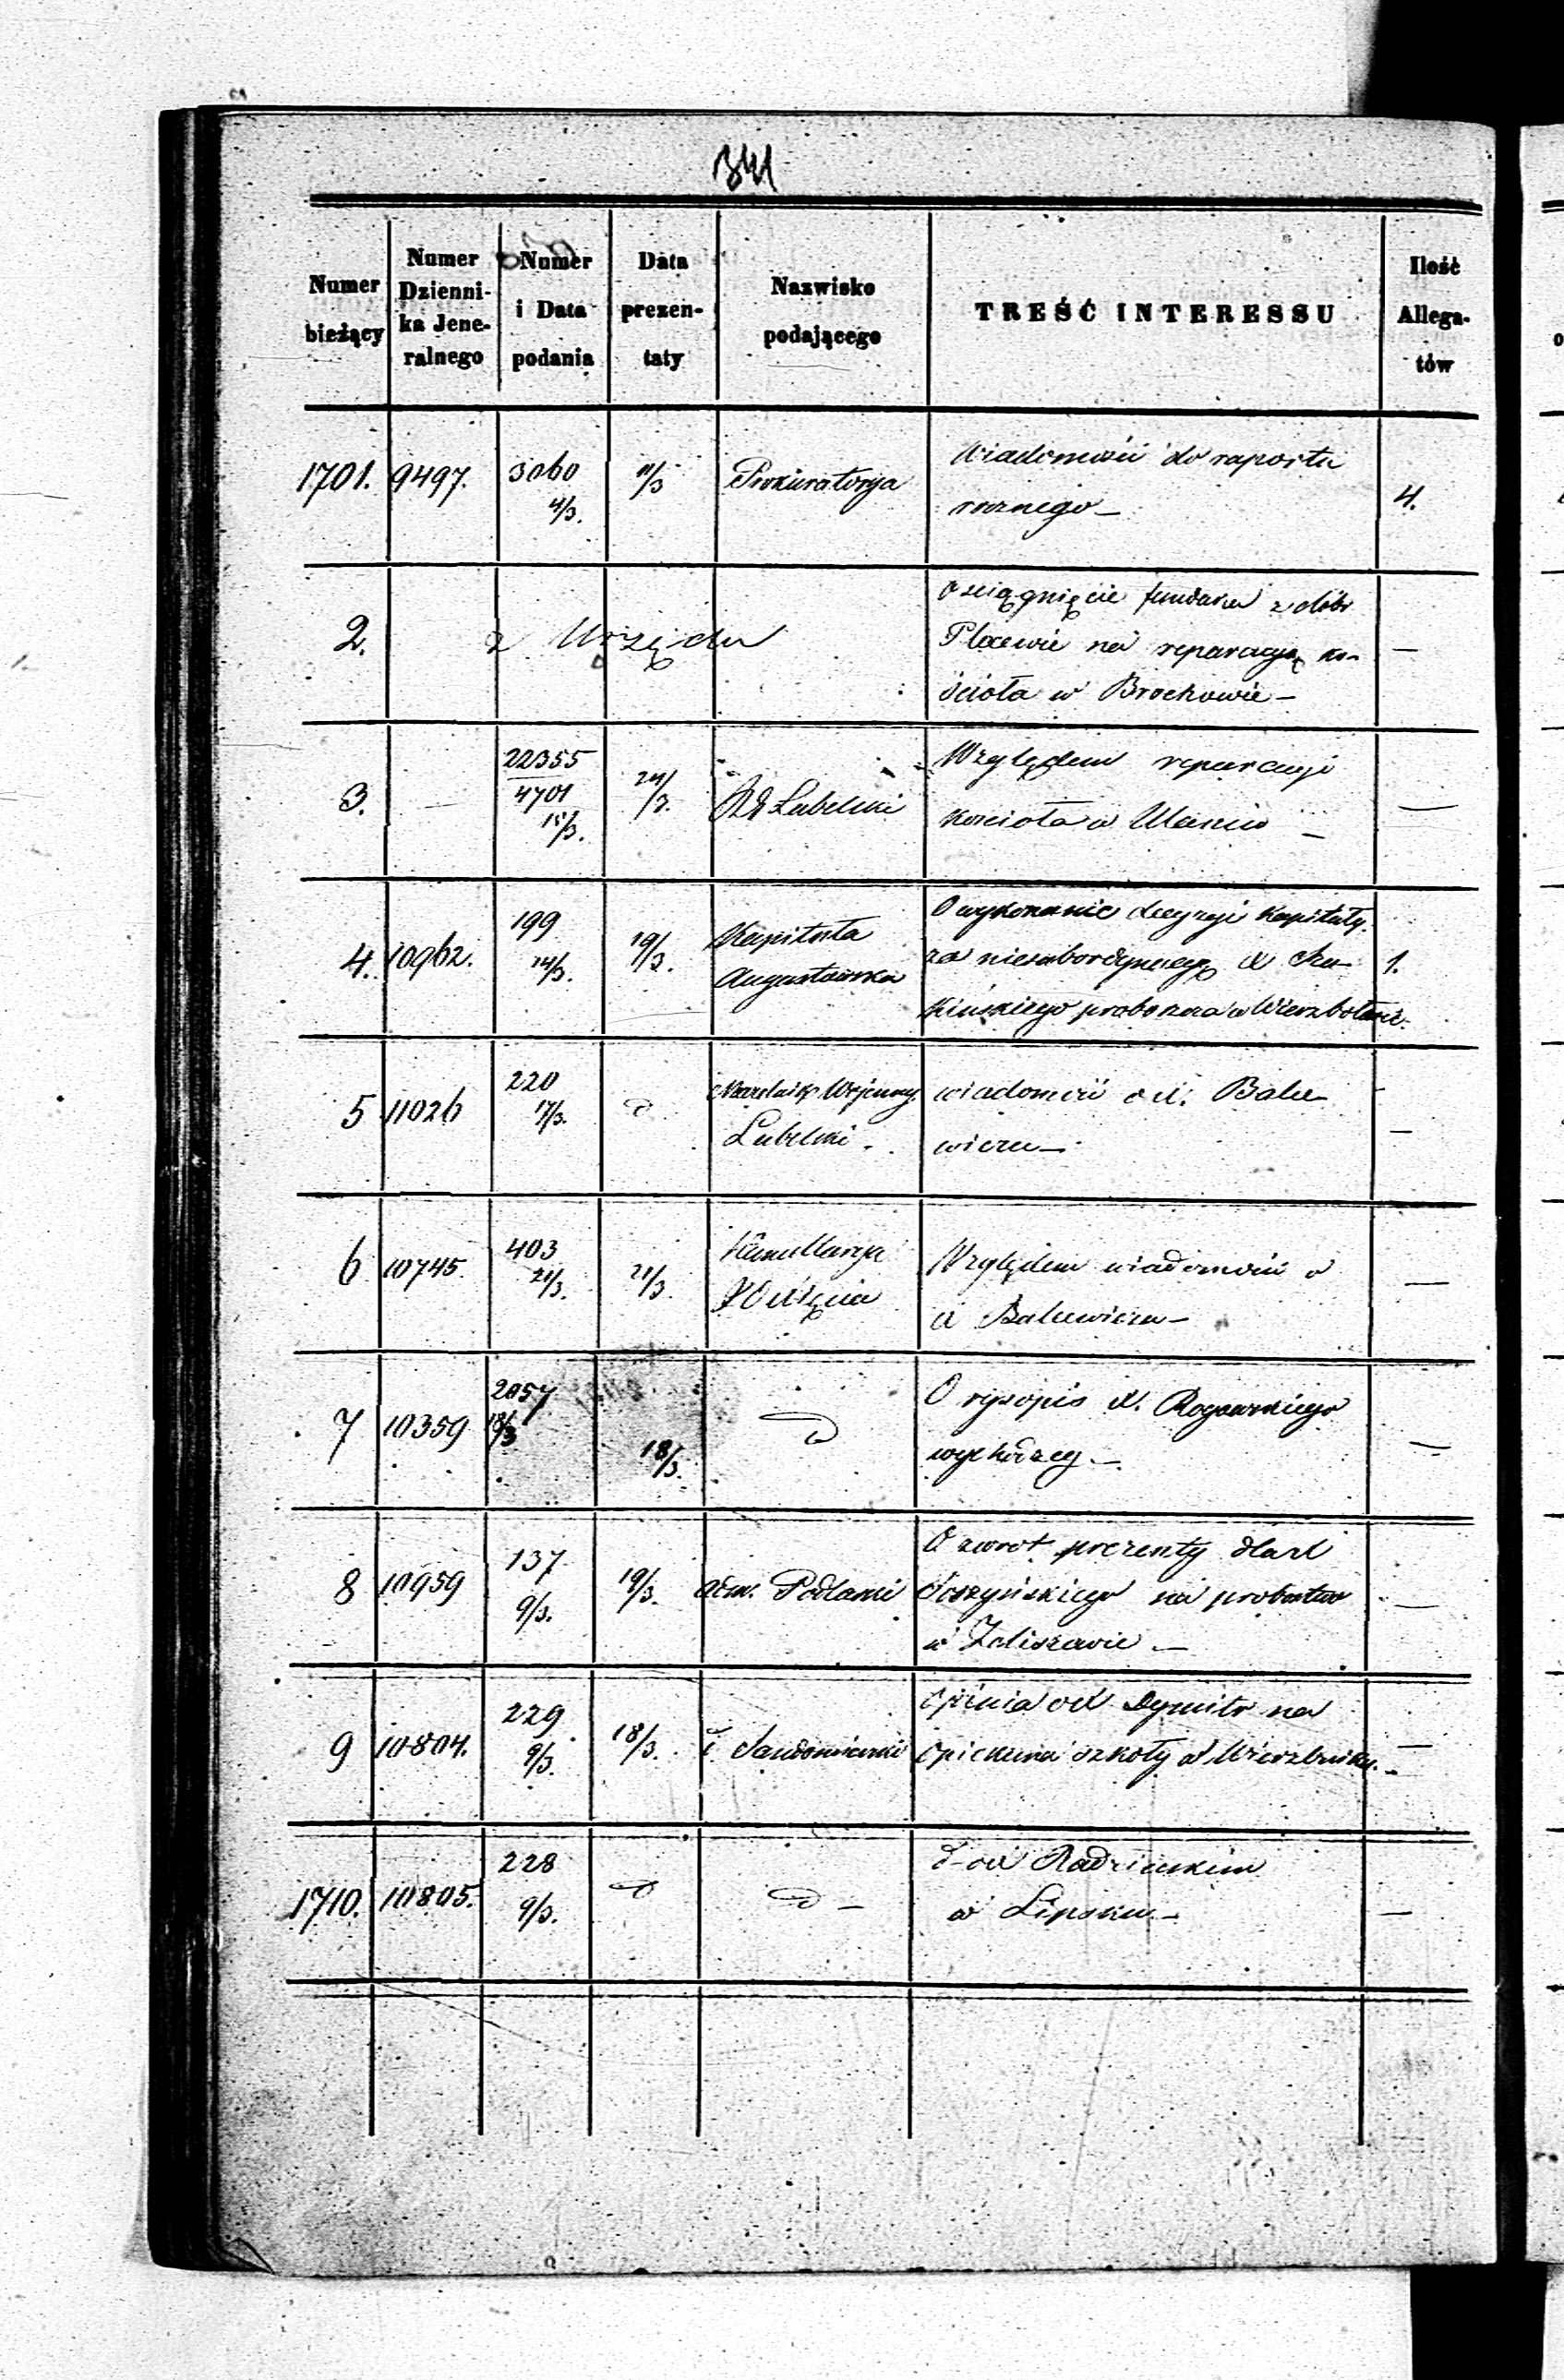 341
Numer bieżący
Numer Dzienni-
ka Jene-
ralnego
Numer i Data podania
Data prezen-
taty
Nazwisko podającego
TREŚĆ INTERESSU
Ilość Allega-
tów
1701. 9497. 3060 4/3. 11/3 Prokuratorya Wiadomości do raportu 4.
rocznego —
2. z Urzędu O sciągnięcie funduszu z dóbr
na reparacyę ko- —
ścioła w Brochowie —
3. — 22355 4701 15/3. 24/3. Lubelski Względem reparacyi
Kościoła w — —
4. 10962. 199 14/3. 19/3. Kapituła O wykonanie decyzyi Kapituły
Augustowska za niesubordynacyę X 1.
proboszcza w
5 11026 220 17/3. d Naczelnik Wojenny wiadomości o X. Bale
Lubelski. wiczu — —
6 10745 403 21/3. 21/3. Kancellarya Względem wiadomości o —
X Balewiczu —
7 10359 2057 18/3 18/3. d O rysopis X. Rogowskiego
wychodzcy — —
8 10959 137 9/3. 19/3. Adm. Podlaski O zwrot prezenty dla X
na probostwo —
w —
9 10804. 229 9/3. 18/3. Sandomierski Opinia o X. Dymitr na
Opiekuna szkoły w Wierzbniku. — —
1710. 10805. 228 9/3. d d — d o X Radzimskim
w Lipsku — —